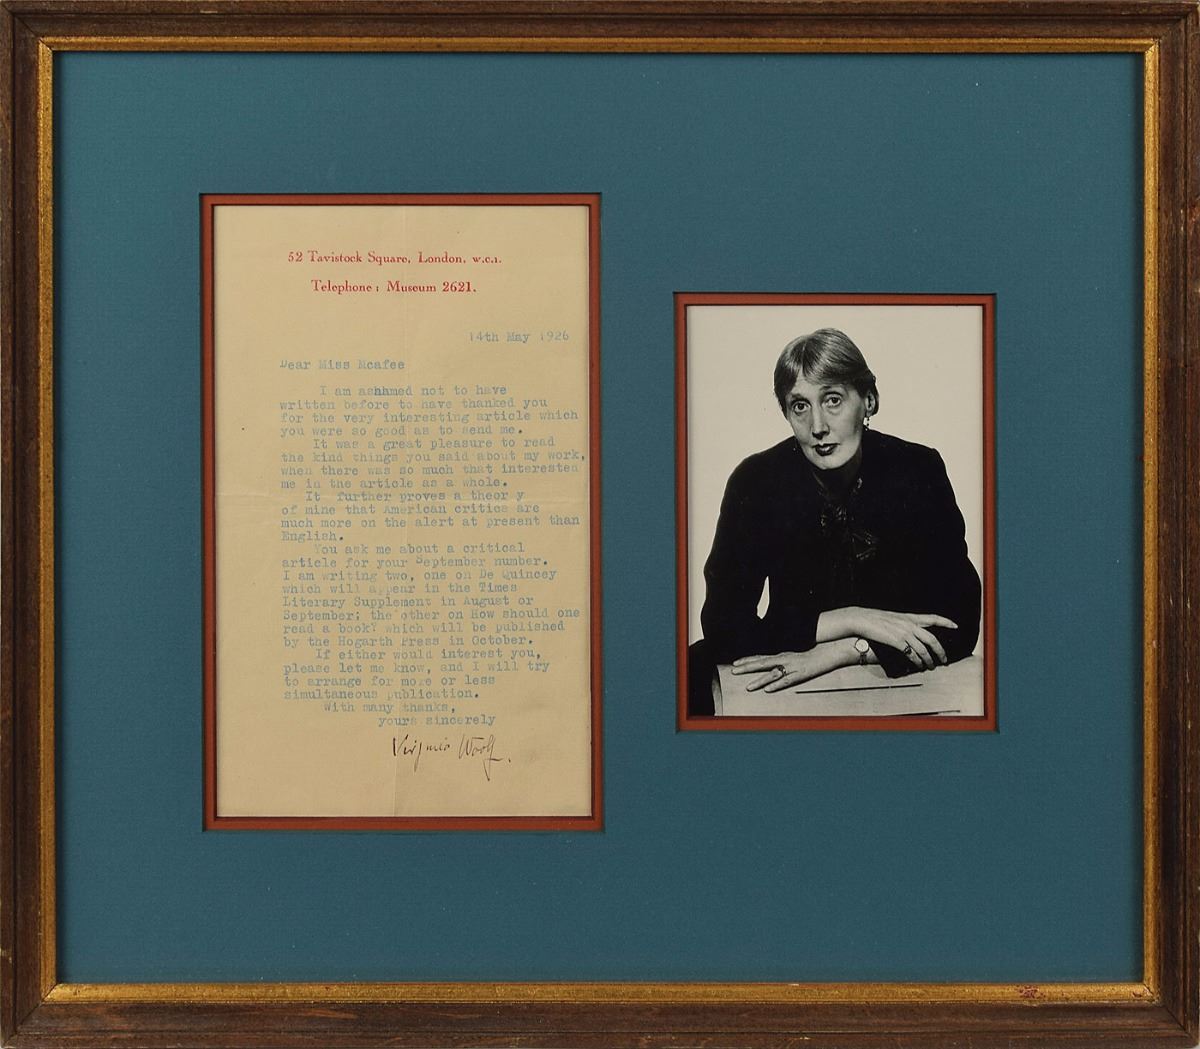 52 Tavistock Square, London, w.c.1.
Telephone: Museum 2621.
14th May 1926
Dear Miss Mcafee
I am ashhmed not to have
written before to have thanked you
for the very interesting article which
you were so good as to send me.
It was a great pleasure to read
the kind things you said about my work,
when there was so much that interested
me in the article as a whole.
It further proves a theor y
of mine that American critics are
much more on the alert at present than
English.
You ask me about a critical
article for your September number.
I am writing two, one on De Quincey
which will appear in the Times
Literary Supplement in August or
September; the other on How should one
read a book? which will be published
by the Hogarth Press in October.
If either would interest you,
please let me know, and I will try
to arrange for more or less
simultaneous publication.
With many thanks,
yours sincerely
Virginia Woolf.